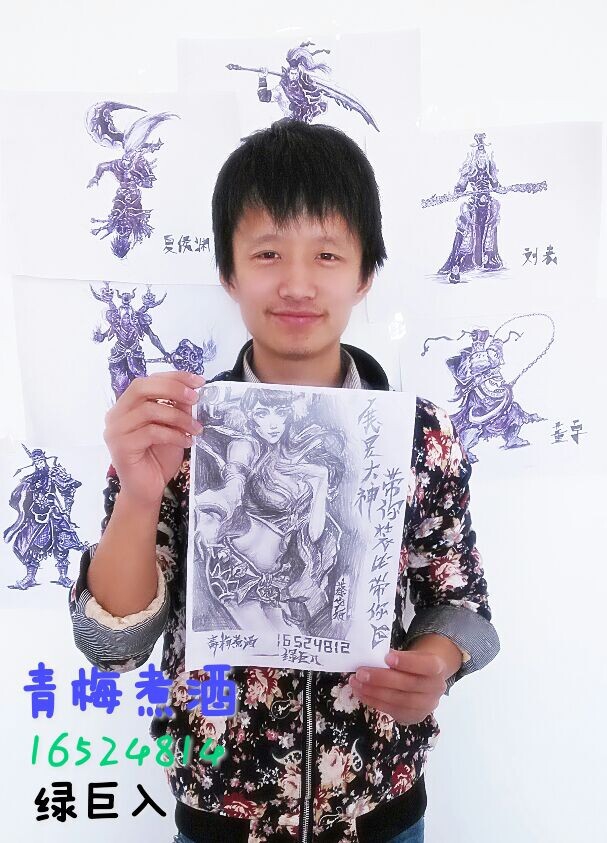 夏侯渊
刘表
董卓
我是大神
带你装比带你
青梅煮酒 16524812
绿巨人
青梅煮酒
16524814
绿巨入